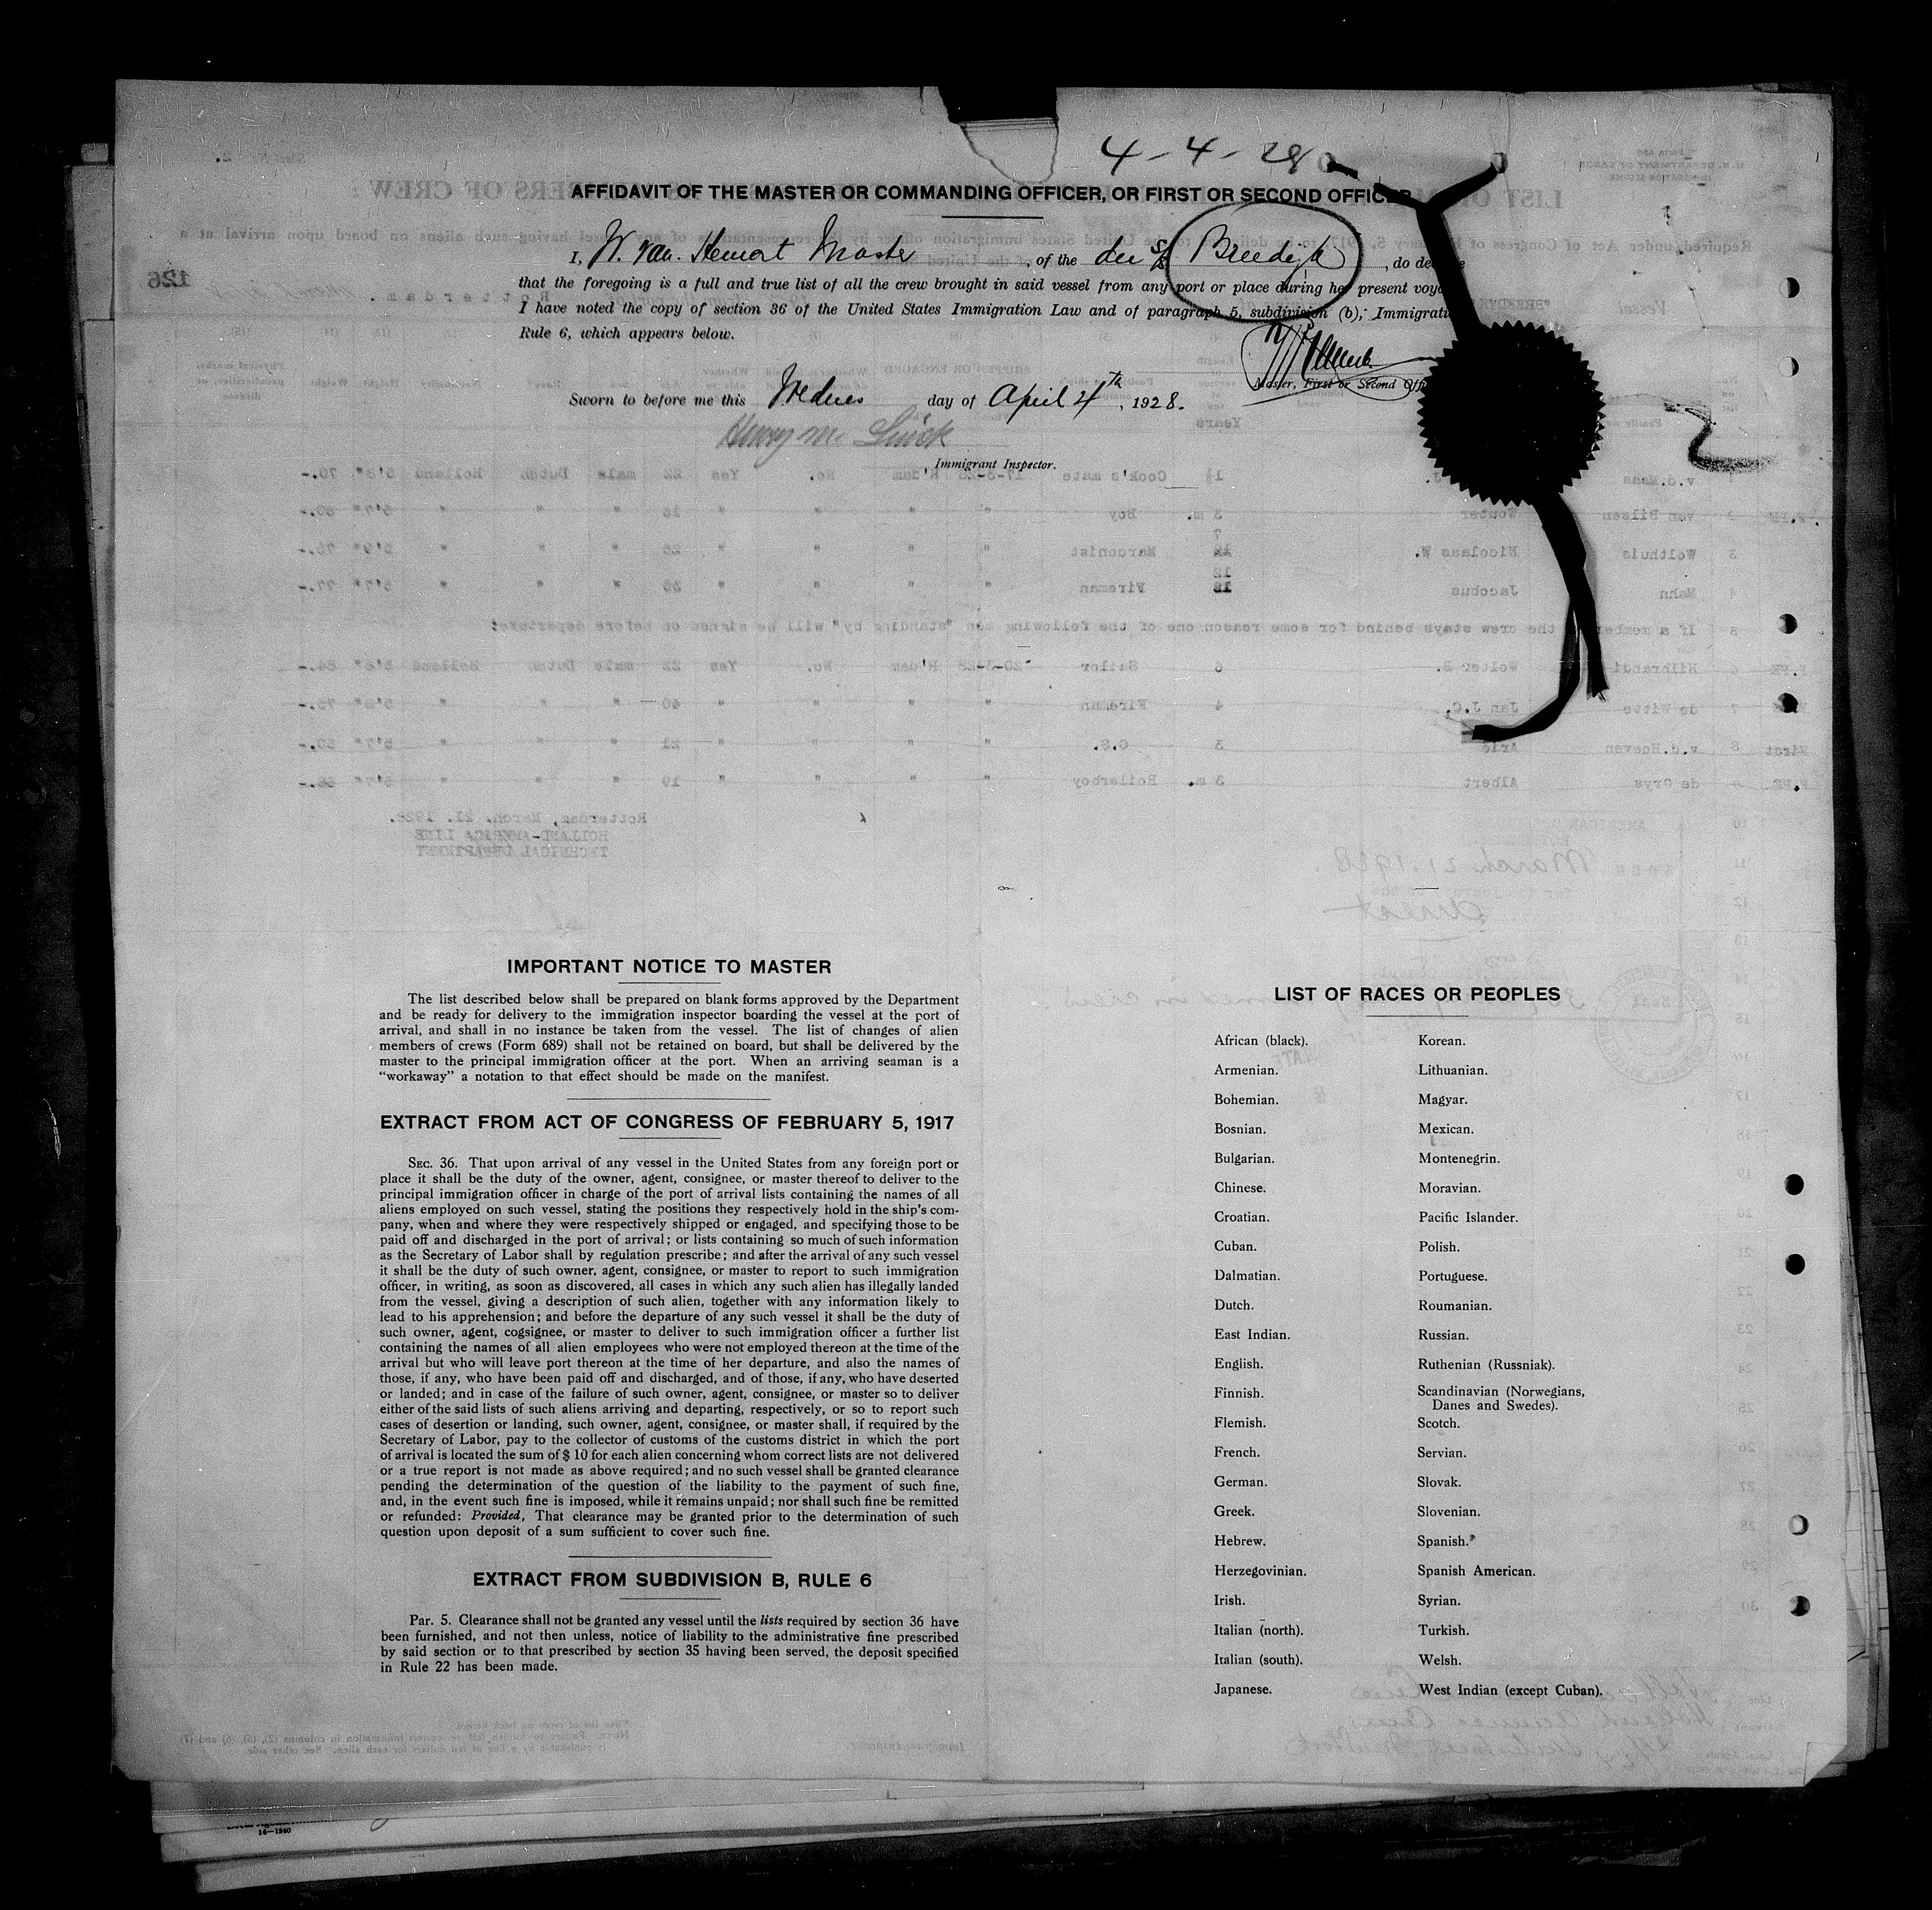 4-4-28
AFFIDAVIT OF THE MASTER OR COMMANDING OFFICER, OR FIRST OR SECOND OFFICER
I, W. van Master, of the Du S/S Breedijk, do
that the foregoing is a full and true list of all the crew brought in said vessel from any port or place during her present
I have noted the copy of section 36 of the United States Immigration Law and of paragraph 5, subdivision (b),
Rule 6, which appears below.
Master, First or Second
Sworn to before me this Wednes day of April 4th, 1928.
Henry M.
Immigrant Inspector.
IMPORTANT NOTICE TO MASTER
The list described below shall be prepared on blank forms approved by the Department
and be ready for delivery to the immigration inspector boarding the vessel at the port of
arrival, and shall in no instance be taken from the vessel. The list of changes of alien
members of crews (Form 689) shall not be retained on board, but shall be delivered by the
master to the principal immigration officer at the port. When an arriving seaman is a
“workaway” a notation to that effect should be made on the manifest.
EXTRACT FROM ACT OF CONGRESS OF FEBRUARY 5, 1917
SEC. 36. That upon arrival of any vessel in the United States from any foreign port or
place it shall be the duty of the owner, agent, consignee, or master thereof to deliver to the
principal immigration officer in charge of the port of arrival lists containing the names of all
aliens employed on such vessel, stating the positions they respectively hold in the ship's com-
pany, when and where they were respectively shipped or engaged, and specifying those to be
paid off and discharged in the port of arrival; or lists containing so much of such information
as the Secretary of Labor shall by regulation prescribe; and after the arrival of any such vessel
it shall be the duty of such owner, agent, consignee, or master to report to such immigration
officer, in writing, as soon as discovered, all cases in which any such alien has illegally landed
from the vessel, giving a description of such alien, together with any information likely to
lead to his apprehension; and before the departure of any such vessel it shall be the duty of
such owner, agent, cogsignee, or master to deliver to such immigration officer a further list
containing the names of all alien employees who were not employed thereon at the time of the
arrival but who will leave port thereon at the time of her departure, and also the names of
those, if any, who have been paid off and discharged, and of those, if any, who have deserted
or landed; and in case of the failure of such owner, agent, consignee, or master so to deliver
either of the said lists of such aliens arriving and departing, respectively, or so to report such
cases of desertion or landing, such owner, agent, consignee, or master shall, if required by the
Secretary of Labor, pay to the collector of customs of the customs district in which the port
of arrival is located the sum of $ 10 for each alien concerning whom correct lists are not delivered
or a true report is not made as above required; and no such vessel shall be granted clearance
pending the determination of the question of the liability to the payment of such fine,
and, in the event such fine is imposed, while it remains unpaid; nor shall such fine be remitted
or refunded: Provided, That clearance may be granted prior to the determination of such
question upon deposit of a sum sufficient to cover such fine.
EXTRACT FROM SUBDIVISION B, RULE 6
Par. 5. Clearance shall not be granted any vessel until the lists required by section 36 have
been furnished, and not then unless, notice of liability to the administrative fine prescribed
by said section or to that prescribed by section 35 having been served, the deposit specified
in Rule 22 has been made.
LIST OF RACES OR PEOPLES
African (black). Korean.
Armenian. Lithuanian.
Bohemian. Magyar.
Bosnian. Mexican.
Bulgarian. Montenegrin.
Chinese. Moravian.
Croatian. Pacific Islander.
Cuban. Polish.
Dalmatian. Portuguese.
Dutch. Roumanian.
East Indian. Russian.
English. Ruthenian (Russniak).
Finnish. Scandinavian (Norwegians,
Danes and Swedes).
Flemish. Scotch.
French. Servian.
German. Slovak.
Greek. Slovenian.
Hebrew. Spanish.
Herzegovinian. Spanish American.
Irish. Syrian.
Italian (north). Turkish.
Italian (south). Welsh.
Japanese. West Indian (except Cuban).
14—1240